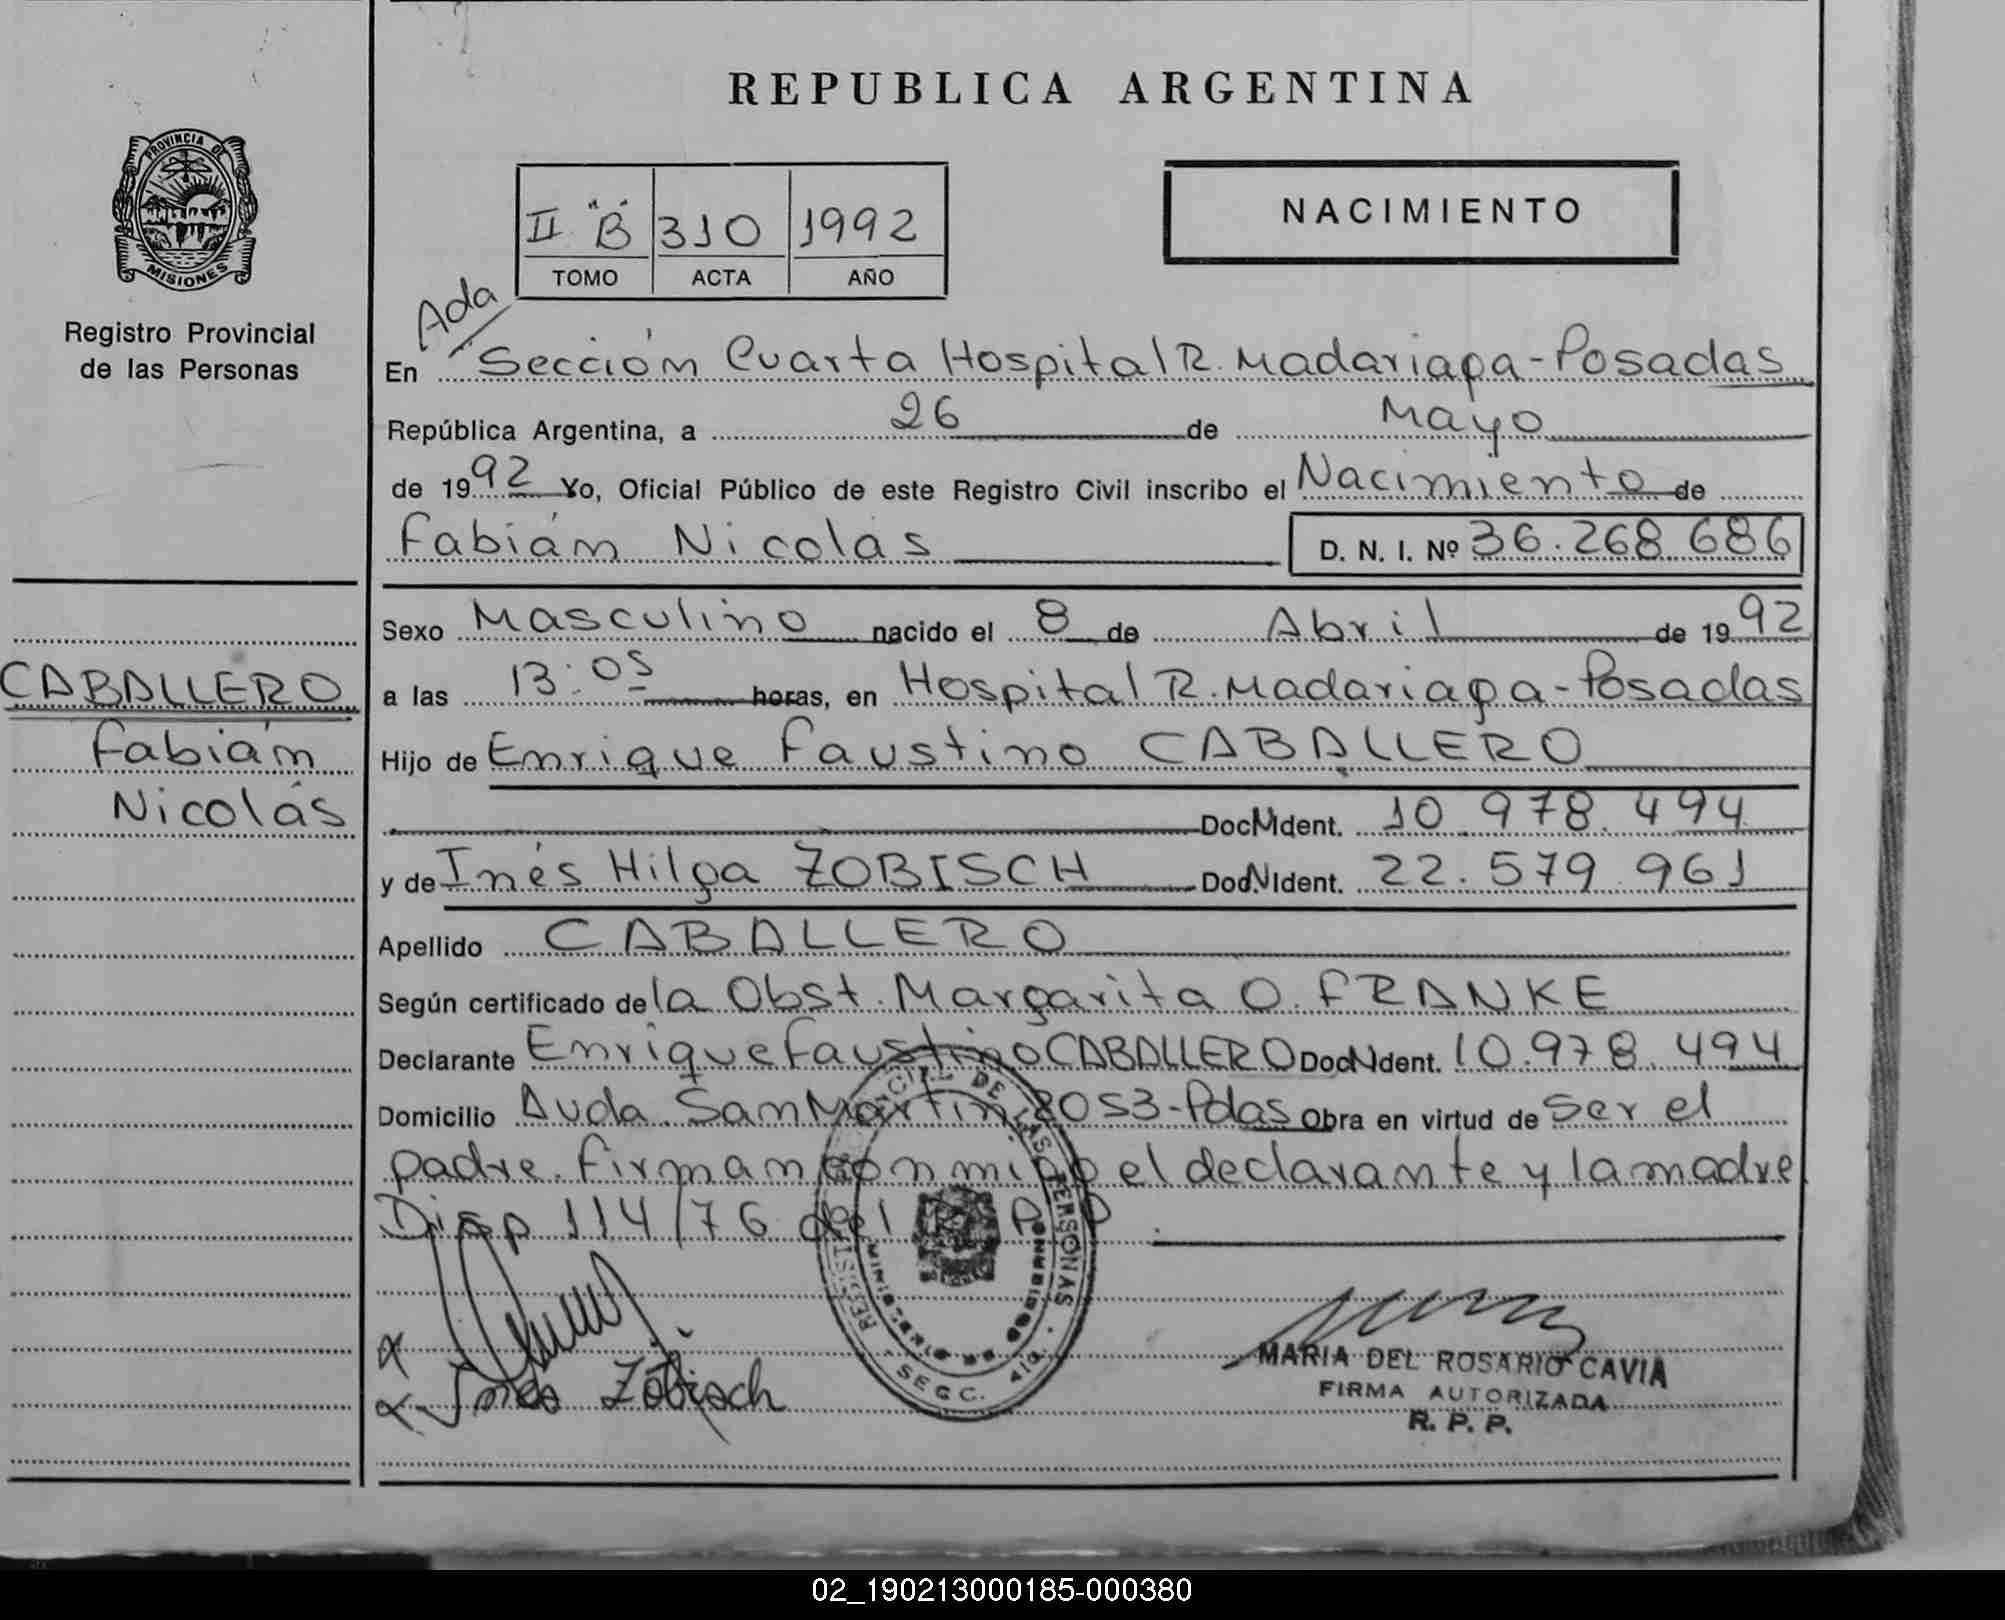 REPUBLICA ARGENTINA
PROVINCIA DE
MISIONES
Registro Provincial
de las Personas
II "B" 310 1992
TOMO ACTA AÑO
NACIMIENTO
Ada
En Sección Cuarta Hospital R. Madariaga - Posadas
República Argentina, a 26 de Mayo
de 1992 Yo, Oficial Público de este Registro Civil inscribo el Nacimiento de
Fabián Nicolás D. N. I. Nº 36.268.686
Sexo Masculino nacido el 8 de Abril de 1992
a las 13:05 horas, en Hospital R. Madariaga - Posadas
Hijo de Enrique Faustino CABALLERO
Doc. Ident. 10.978.494
y de Inés Hilga ZOBISCH Doc. Ident. 22.579.961
Apellido CABALLERO
Según certificado de la Obst. Margarita O. FRANKE
Declarante Enrique Faustino CABALLERO Doc. Ident. 10.978.494
Domicilio Avda. San Martín 2053 - Pdas Obra en virtud de Ser el
padre. Firman conmigo el declarante y la madre
Disp 114/76 del R.P.P.
CABALLERO
Fabián
Nicolás
Inés Zobisch
DE LAS PERSONAS
MINISTERIO DE GOBIERNO
SECC. 4ta
MARIA DEL ROSARIO CAVIA
FIRMA AUTORIZADA
R. P. P.
02_190213000185-000380